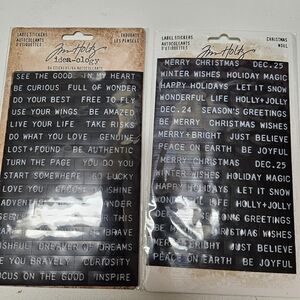 LABEL STICKERS
AUTOCOLLANTS
D'ETIQUETTES
Tim Holtz
idea-ology
THOUGHTS
LES PENSEES
SEE THE GOOD IN MY HEART
BE CURIOUS FULL OF WONDER
DO YOUR BEST FREE TO FLY
USE YOUR WINGS BE AMAZED
LIVE YOUR LIFE TAKE RISKS
DO WHAT YOU LOVE GENUINE
LOST+FOUND BE AUTHENTIC
TURN THE PAGE YOU DO YOU
START SOMEWHERE SO LUCKY
LOVE YOU
BE BRAVE
DREAMER OF DREAMS
BE YOU BRAVELY CURIOSITY
FOCUS ON THE GOOD INSPIRE
LABEL STICKERS
AUTOCOLLANTS
D'ETIQUETTES
Tim Holtz
CHRISTMAS
NOEL
MERRY CHRISTMAS DEC.25
WINTER WISHES HOLIDAY MAGIC
HAPPY HOLIDAYS LET IT SNOW
WONDERFUL LIFE HOLLY+JOLLY
DEC.24 SEASON'S GREETINGS
BE MERRY CHRISTMAS WISHES
MERRY+BRIGHT JUST BELIEVE
PEACE ON EARTH BE JOYFUL
MERRY CHRISTMAS DEC.25
WINTER WISHES HOLIDAY MAGIC
HAPPY HOLIDAYS LET IT SNOW
WONDERFUL LIFE HOLLY+JOLLY
DEC.24 SEASON'S GREETINGS
BE MERRY CHRISTMAS WISHES
MERRY+BRIGHT JUST BELIEVE
PEACE ON EARTH BE JOYFUL